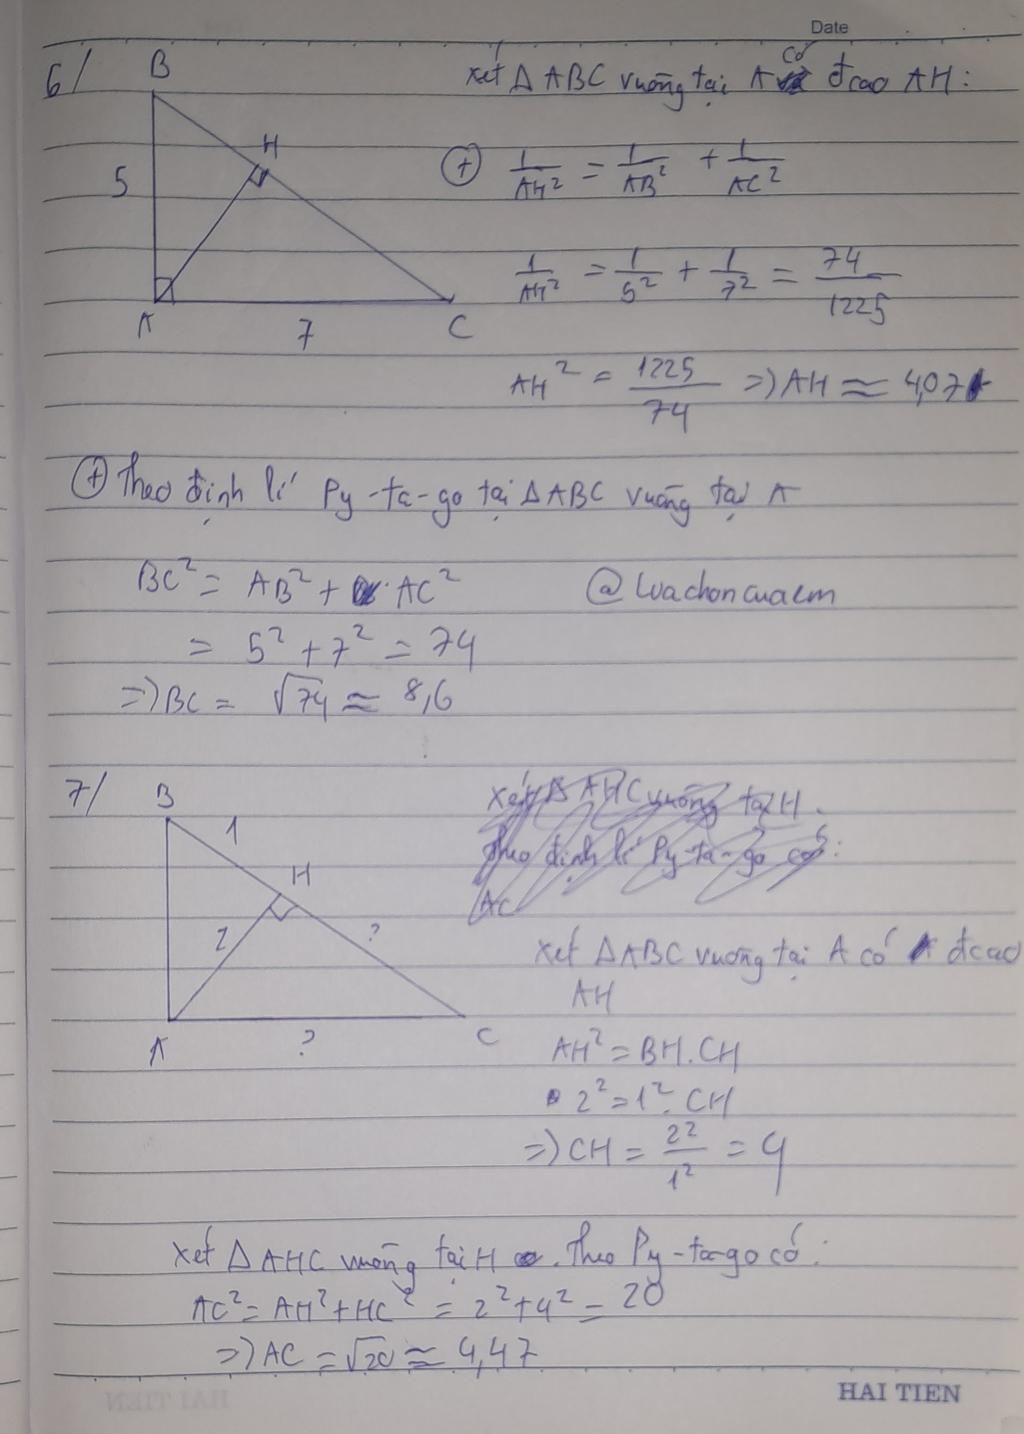 Date
6/
B
H
5
A
7
C
Xét Δ ABC vuông tại A có đcao AH:
(+) 1/AH² = 1/AB² + 1/AC²
1/AH² = 1/5² + 1/7² = 74/1225
AH² = 1225/74 => AH ≈ 4,07
(+) Theo định lí Py-ta-go tại Δ ABC vuông tại A
BC² = AB² + AC²
@luachoncuaem
= 5² + 7² = 74
=> BC = √74 ≈ 8,6
7/
B
1
H
2
?
A
?
C
Xét Δ AHC vuông tại H.
Theo định lí Py-ta-go có:
AC
Xét ΔABC vuông tại A có đcao
AH
AH² = BH.CH
2² = 1². CH
=> CH = 2²/1² = 4
Xét Δ AHC vuông tại H. Theo Py-ta-go có:
AC² = AH² + HC² = 2² + 4² = 20
=> AC = √20 ≈ 4,47
HAI TIEN